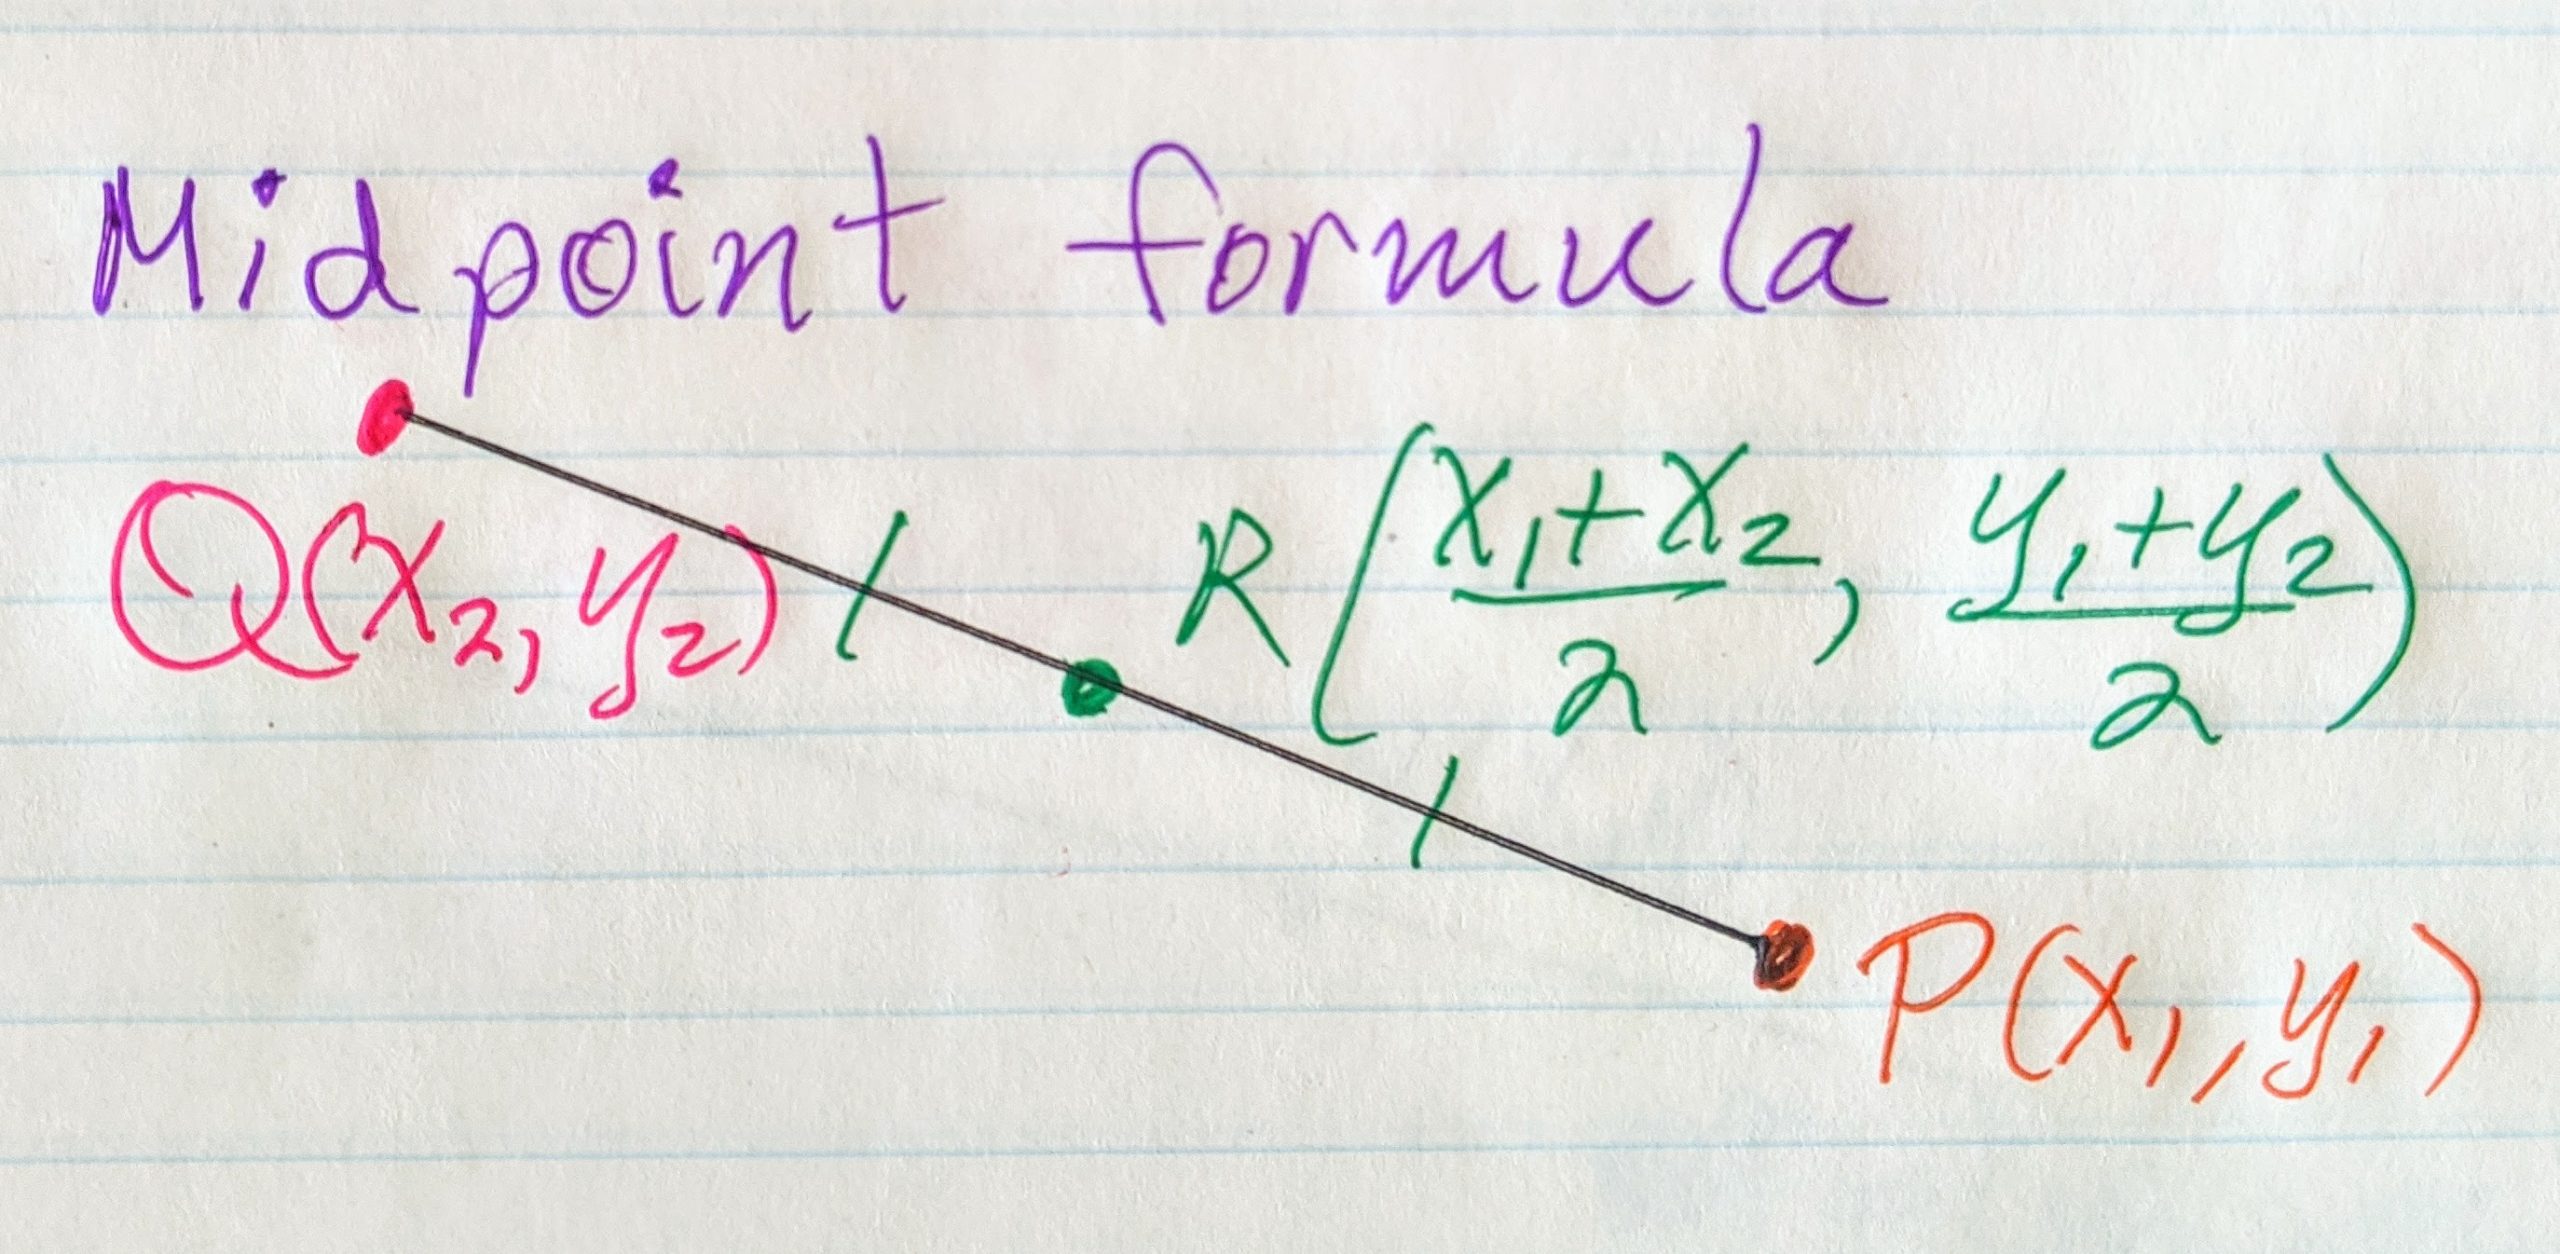 Midpoint formula
Q(x₂, y₂)
R((x₁+x₂)/2, (y₁+y₂)/2)
P(x₁, y₁)